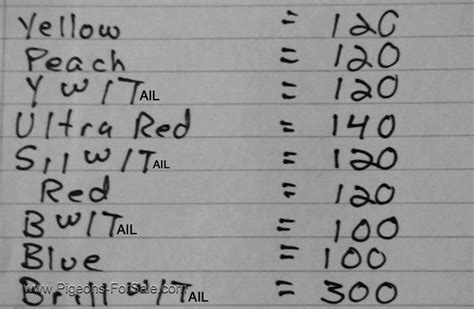 Yellow = 120
Peach = 120
Y W/TAIL = 120
Ultra Red = 140
Sil W/TAIL = 120
Red = 120
B W/TAIL = 100
Blue = 100
www.Pigeons-ForSale.com
Brill W/TAIL = 300